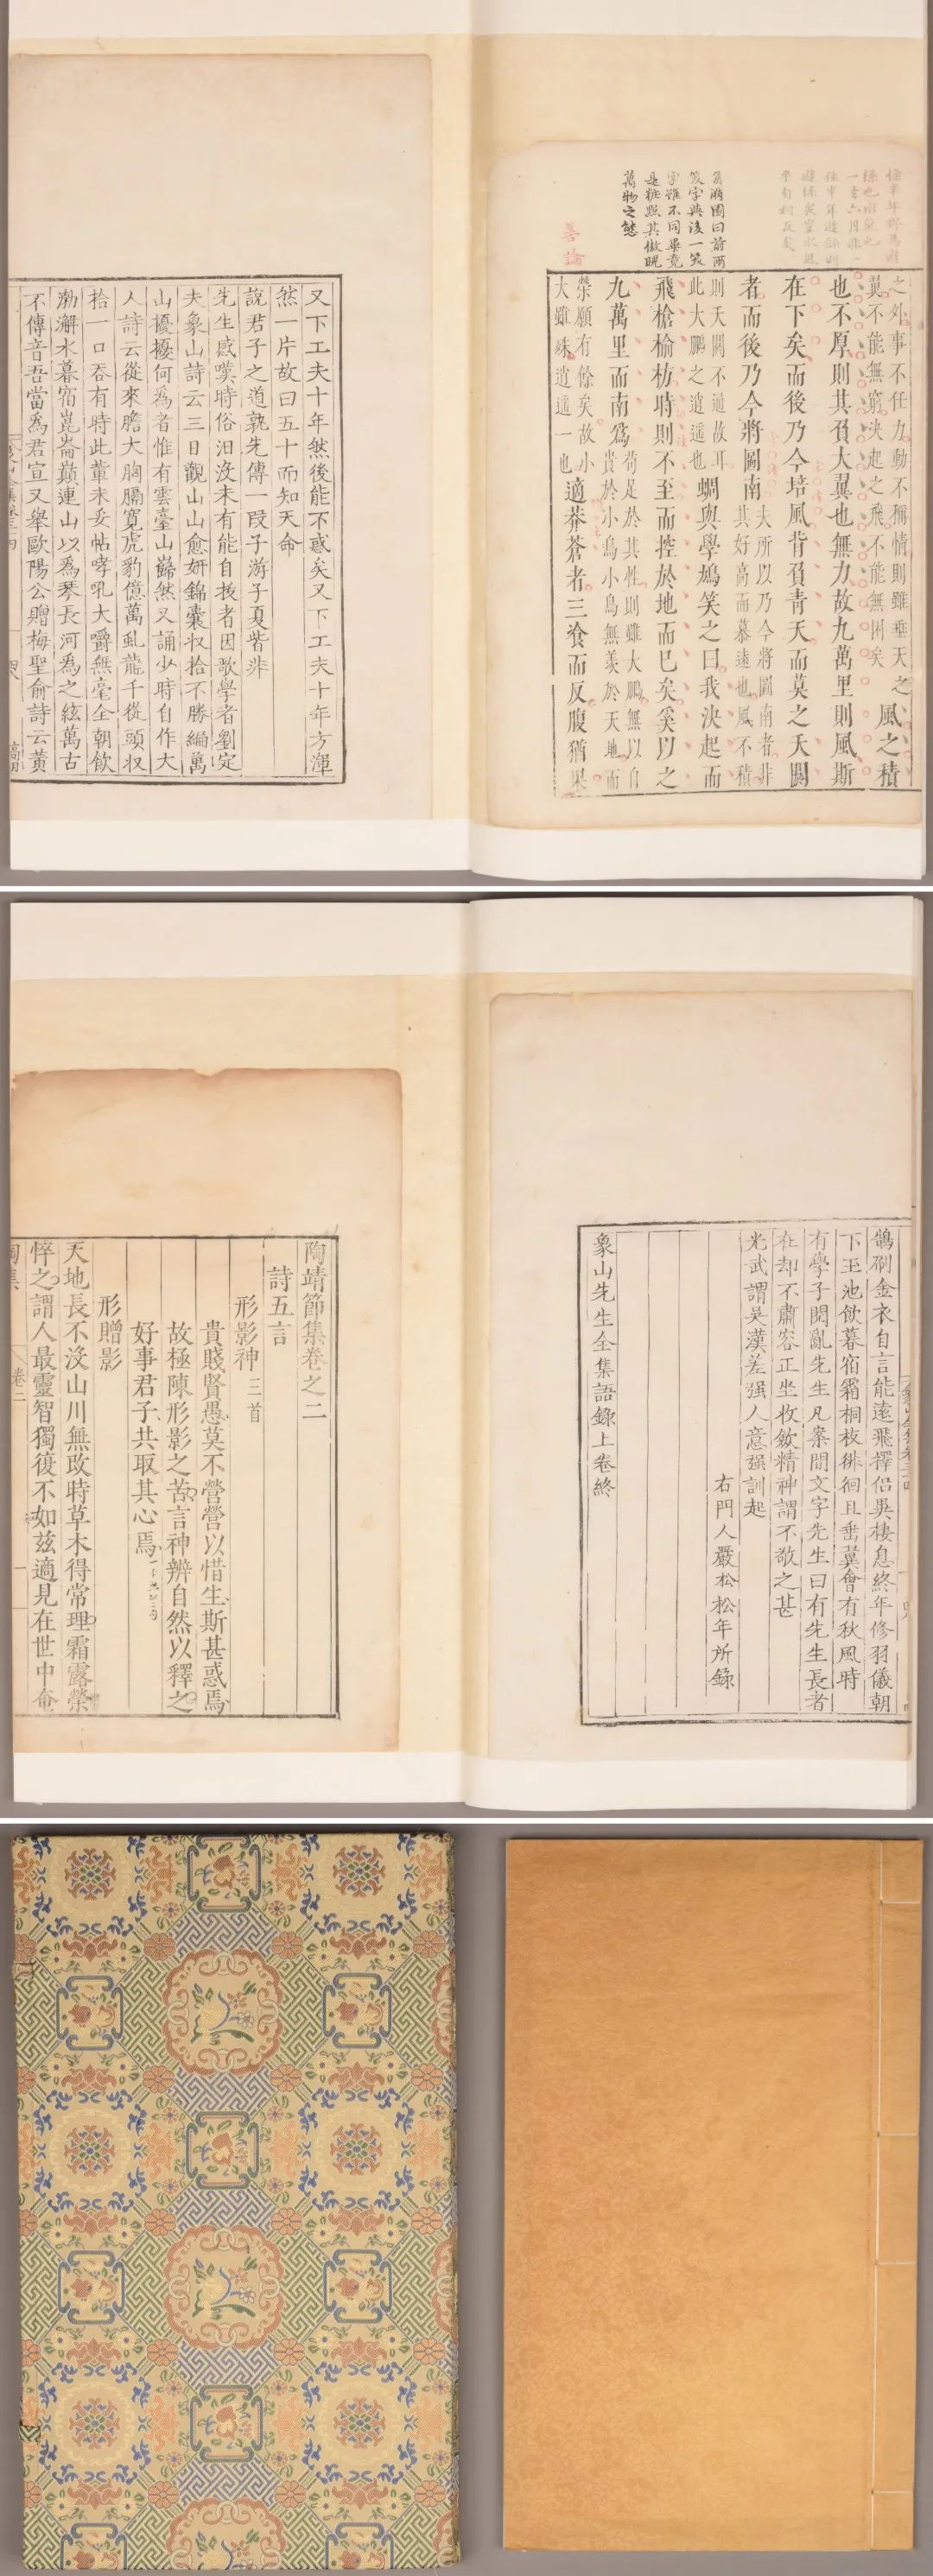 之外事不任力動不稱情則雖垂天之
翼不能無窮決起之飛不能無困矣
風之積
也不厚則其負大翼也無力故九萬里則風斯
在下矣而後乃今培風背負青天而莫之夭閼
者而後乃今將圖南
夫所以乃今將圖南者非
其好高而慕遠也風不積
則夭閼不通故耳
此大鵬之逍遙也
蜩與學鳩笑之曰我決起而
飛槍榆枋時則不至而控於地而已矣奚以之
九萬里而南為
苟足於其性則雖大鵬無以自
貴於小鳥小鳥無羨於天地而
榮願有餘矣故小
大雖殊逍遙一也
適莽蒼者三飡而反腹猶果
曰前兩
笑字與後一笑
字雖不同畢竟
是粧點其傲睨
萬物之態
善論
又下工夫十年然後能不惑矣又下工夫十年方渾
然一片故曰五十而知天命
說君子之道孰先傳一段子游子夏皆非
先生感嘆時俗汨沒未有能自拔者因歌學者劉定
夫象山詩云三日觀山山愈妍錦囊収拾不勝編萬
山擾擾何為者惟有雲臺山巋然又誦少時自作大
人詩云從來膽大胸膈寬虎豹億萬虬龍千從頭収
拾一口吞有時此輩未妥帖哮吼大嚼無毫全朝飲
渤澥水暮宿崑崙巔連山以為琴長河為之絃萬古
不傳音吾當為君宣又舉歐陽公贈梅聖俞詩云黃
鵠刷金衣自言能遠飛擇侶異棲息終年修羽儀朝
下玉池飲暮宿霜桐枝徘徊且垂翼會有秋風時
有學子閱亂先生几案間文字先生曰有先生長者
在却不肅容正坐收斂精神謂不敬之甚
光武謂吳漢差强人意强訓起
右門人嚴松松年所錄
象山先生全集語錄上卷終
陶靖節集卷之二
詩五言
形影神三首
貴賤賢愚莫不營營以惜生斯甚惑焉
故極陳形影之苦言神辨自然以釋之
好事君子共取其心焉
形贈影
天地長不沒山川無改時草木得常理霜露榮
悴之謂人最靈智獨復不如茲適見在世中奄
陶集
卷二